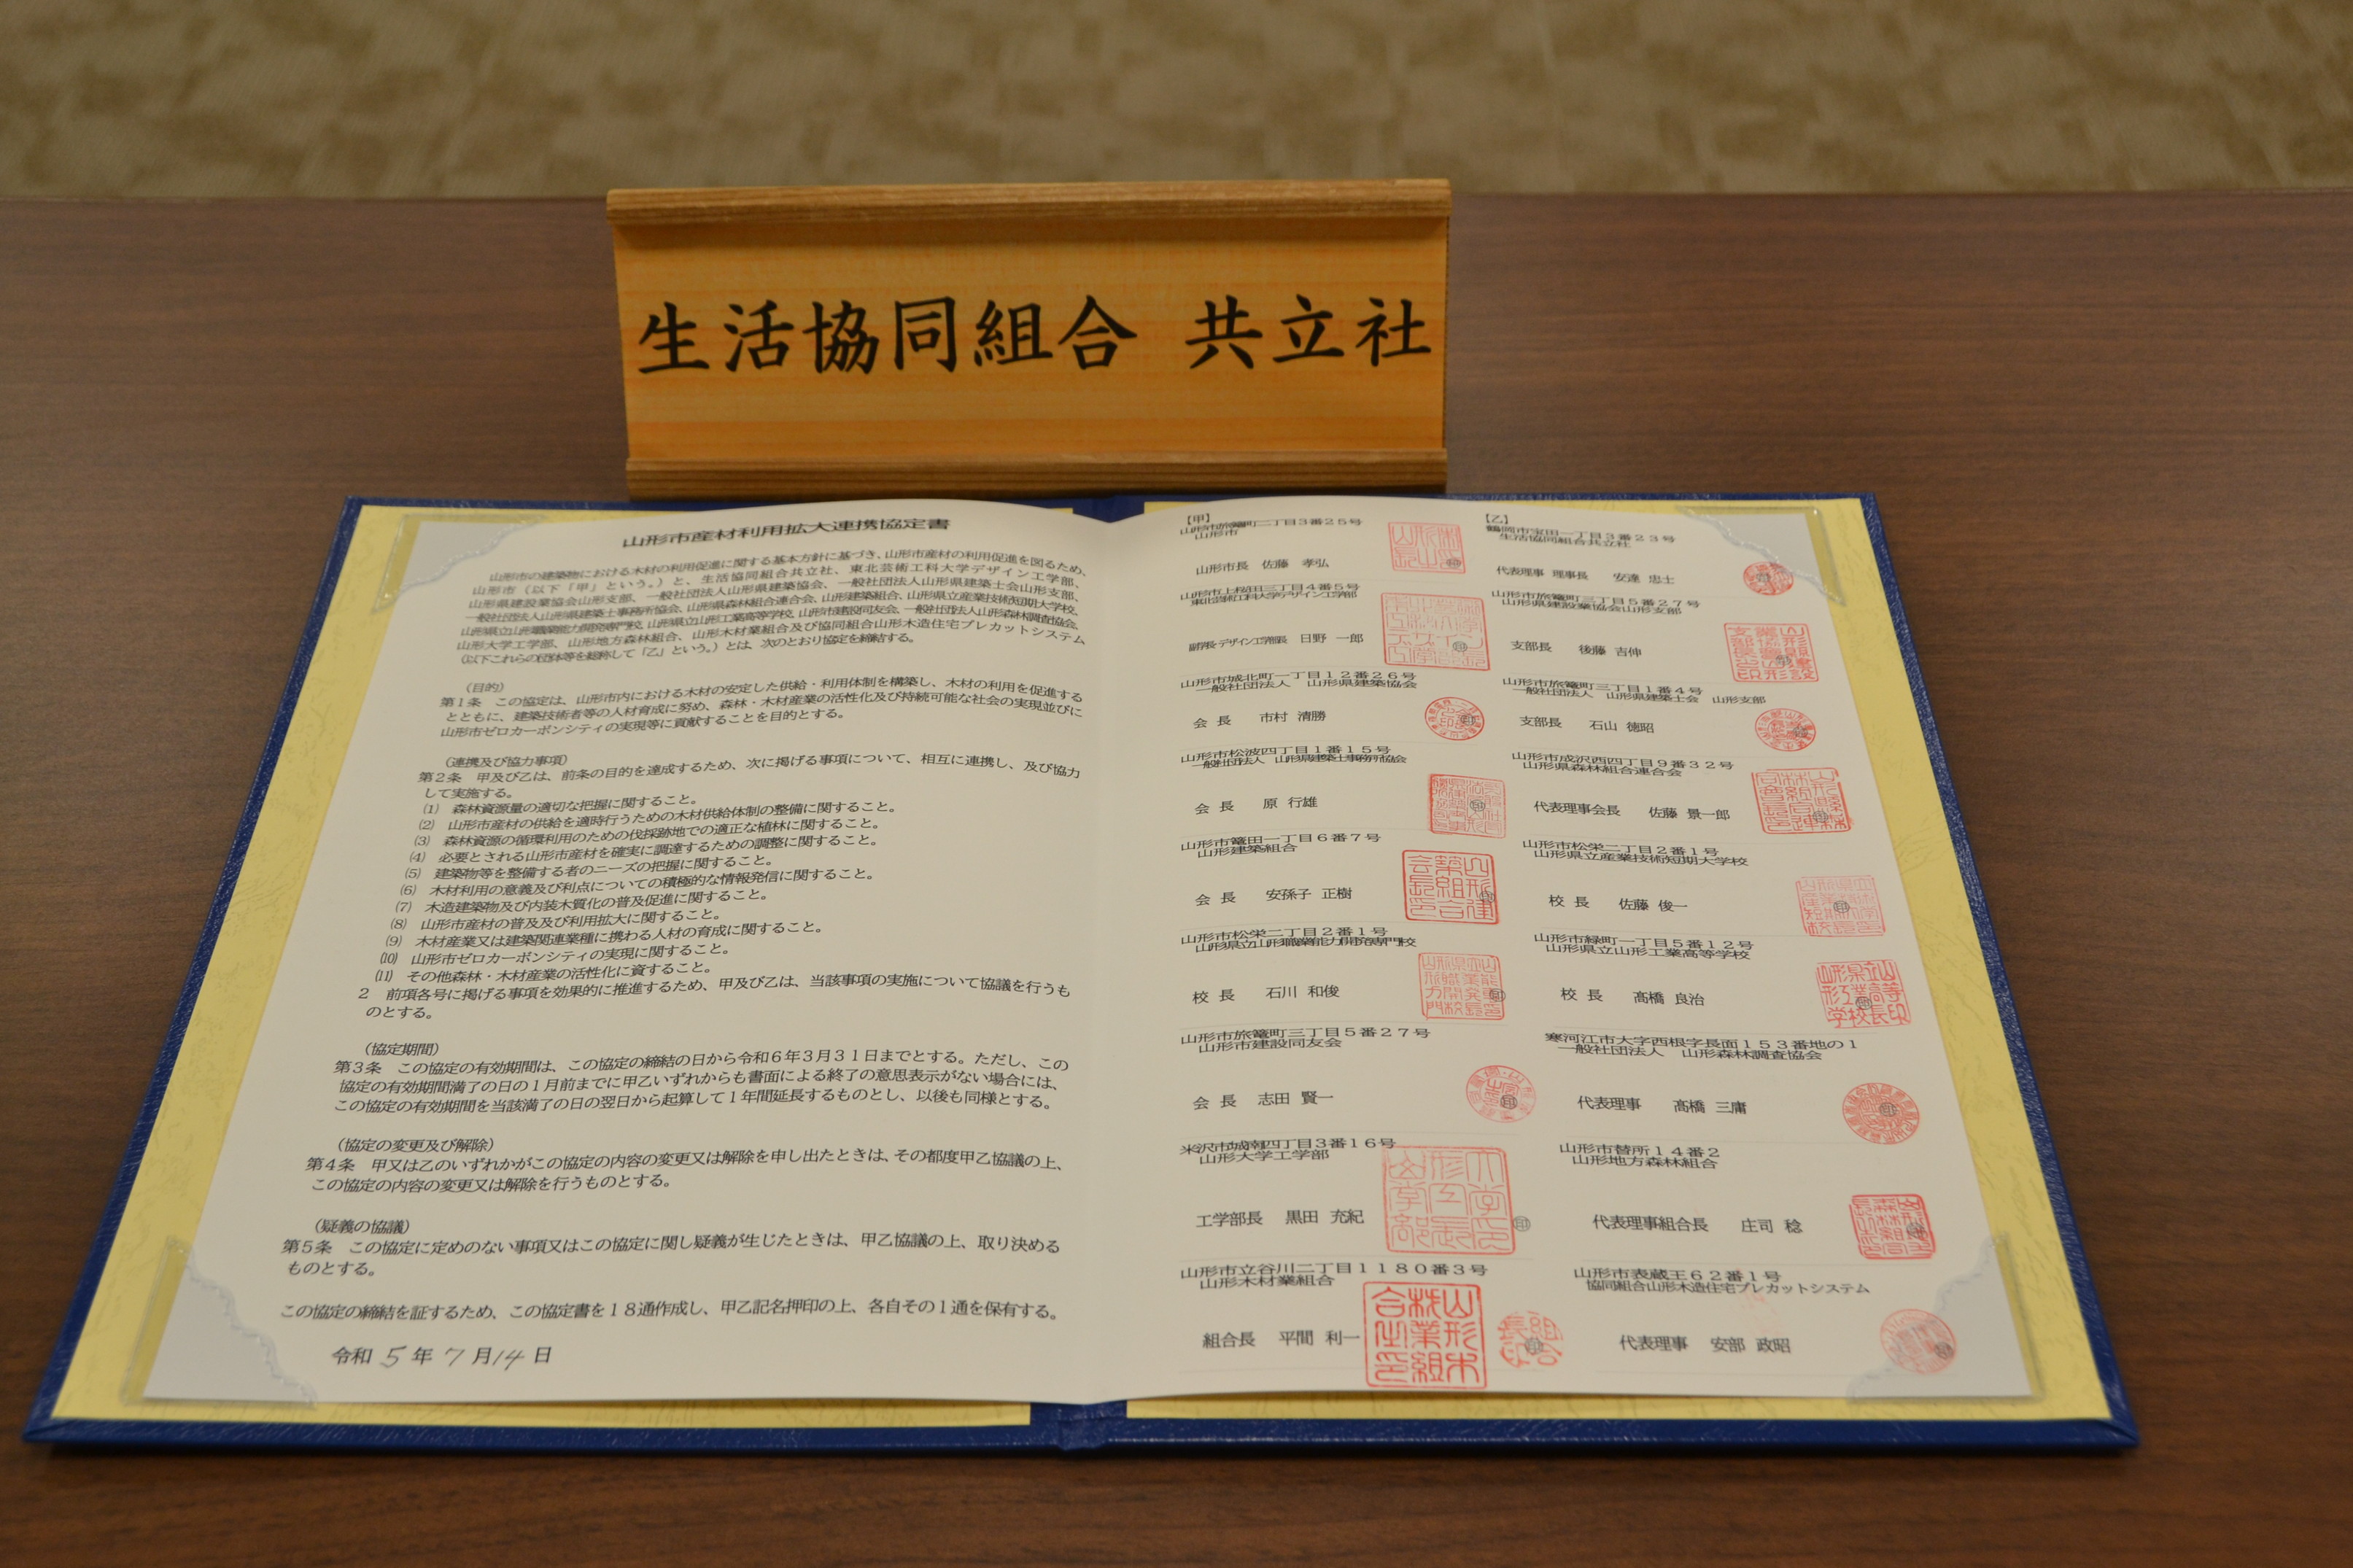 生活協同組合 共立社
山形市産材利用拡大連携協定書
山形市の建築物における木材の利用促進に関する基本方針に基づき、山形市産材の利用促進を図るため、
山形市（以下「甲」という。）と、生活協同組合共立社、東北芸術工科大学デザイン工学部、
山形県建設業協会山形支部、一般社団法人山形県建築協会、一般社団法人山形県建築士会山形支部、
一般社団法人山形県建築士事務所協会、山形県森林組合連合会、山形建築組合、山形県立産業技術短期大学校、
山形県立山形職業能力開発専門校、山形県立山形工業高等学校、山形市建設同友会、一般社団法人山形森林調査協会、
山形大学工学部、山形地方森林組合、山形木材業組合及び協同組合山形木造住宅プレカットシステム
（以下これらの団体等を総称して「乙」という。）とは、次のとおり協定を締結する。
（目的）
第１条　この協定は、山形市内における木材の安定した供給・利用体制を構築し、木材の利用を促進する
とともに、建築技術者等の人材育成に努め、森林・木材産業の活性化及び持続可能な社会の実現並びに
山形市ゼロカーボンシティの実現等に貢献することを目的とする。
（連携及び協力事項）
第２条　甲及び乙は、前条の目的を達成するため、次に掲げる事項について、相互に連携し、及び協力
して実施する。
⑴　森林資源量の適切な把握に関すること。
⑵　山形市産材の供給を適時行うための木材供給体制の整備に関すること。
⑶　森林資源の循環利用のための伐採跡地での適正な植林に関すること。
⑷　必要とされる山形市産材を確実に調達するための調整に関すること。
⑸　建築物等を整備する者のニーズの把握に関すること。
⑹　木材利用の意義及び利点についての積極的な情報発信に関すること。
⑺　木造建築物及び内装木質化の普及促進に関すること。
⑻　山形市産材の普及及び利用拡大に関すること。
⑼　木材産業又は建築関連業種に携わる人材の育成に関すること。
⑽　山形市ゼロカーボンシティの実現に関すること。
⑾　その他森林・木材産業の活性化に資すること。
２　前項各号に掲げる事項を効果的に推進するため、甲及び乙は、当該事項の実施について協議を行うも
のとする。
（協定期間）
第３条　この協定の有効期間は、この協定の締結の日から令和６年３月３１日までとする。ただし、この
協定の有効期間満了の日の１月前までに甲乙いずれからも書面による終了の意思表示がない場合には、
この協定の有効期間を当該満了の日の翌日から起算して１年間延長するものとし、以後も同様とする。
（協定の変更及び解除）
第４条　甲又は乙のいずれかがこの協定の内容の変更又は解除を申し出たときは、その都度甲乙協議の上、
この協定の内容の変更又は解除を行うものとする。
（疑義の協議）
第５条　この協定に定めのない事項又はこの協定に関し疑義が生じたときは、甲乙協議の上、取り決める
ものとする。
この協定の締結を証するため、この協定書を１８通作成し、甲乙記名押印の上、各自その１通を保有する。
令和 5 年 7 月 14 日
【甲】
山形市旅篭町二丁目３番２５号
山形市
山形市長　佐藤　孝弘
山形市上桜田三丁目４番５号
東北芸術工科大学デザイン工学部
副学長・デザイン工学部長　日野　一郎
山形市城北町一丁目１２番２６号
一般社団法人　山形県建築協会
会　長　市村　清勝
山形市松波四丁目１番１５号
一般社団法人　山形県建築士事務所協会
会　長　原　行雄
山形市篭田一丁目６番７号
山形建築組合
会　長　安孫子　正樹
山形市松栄二丁目２番１号
山形県立山形職業能力開発専門校
校　長　石川　和俊
山形市旅篭町三丁目５番２７号
山形市建設同友会
会　長　志田　賢一
米沢市城南四丁目３番１６号
山形大学工学部
工学部長　黒田　充紀
山形市立谷川二丁目１１８０番３号
山形木材業組合
組合長　平間　利一
【乙】
鶴岡市宝田一丁目３番２３号
生活協同組合共立社
代表理事　理事長　安達　忠士
山形市旅篭町三丁目５番２７号
山形県建設業協会山形支部
支部長　後藤　吉伸
山形市旅篭町三丁目１番４号
一般社団法人　山形県建築士会　山形支部
支部長　石山　徳昭
山形市成沢西四丁目９番３２号
山形県森林組合連合会
代表理事会長　佐藤　景一郎
山形市松栄二丁目２番１号
山形県立産業技術短期大学校
校　長　佐藤　俊一
山形市緑町一丁目５番１２号
山形県立山形工業高等学校
校　長　髙橋　良治
寒河江市大字西根字長面１５３番地の１
一般社団法人　山形森林調査協会
代表理事　髙橋　三庸
山形市替所１４番２
山形地方森林組合
代表理事組合長　庄司　稔
山形市表蔵王６２番１号
協同組合山形木造住宅プレカットシステム
代表理事　安部　政昭